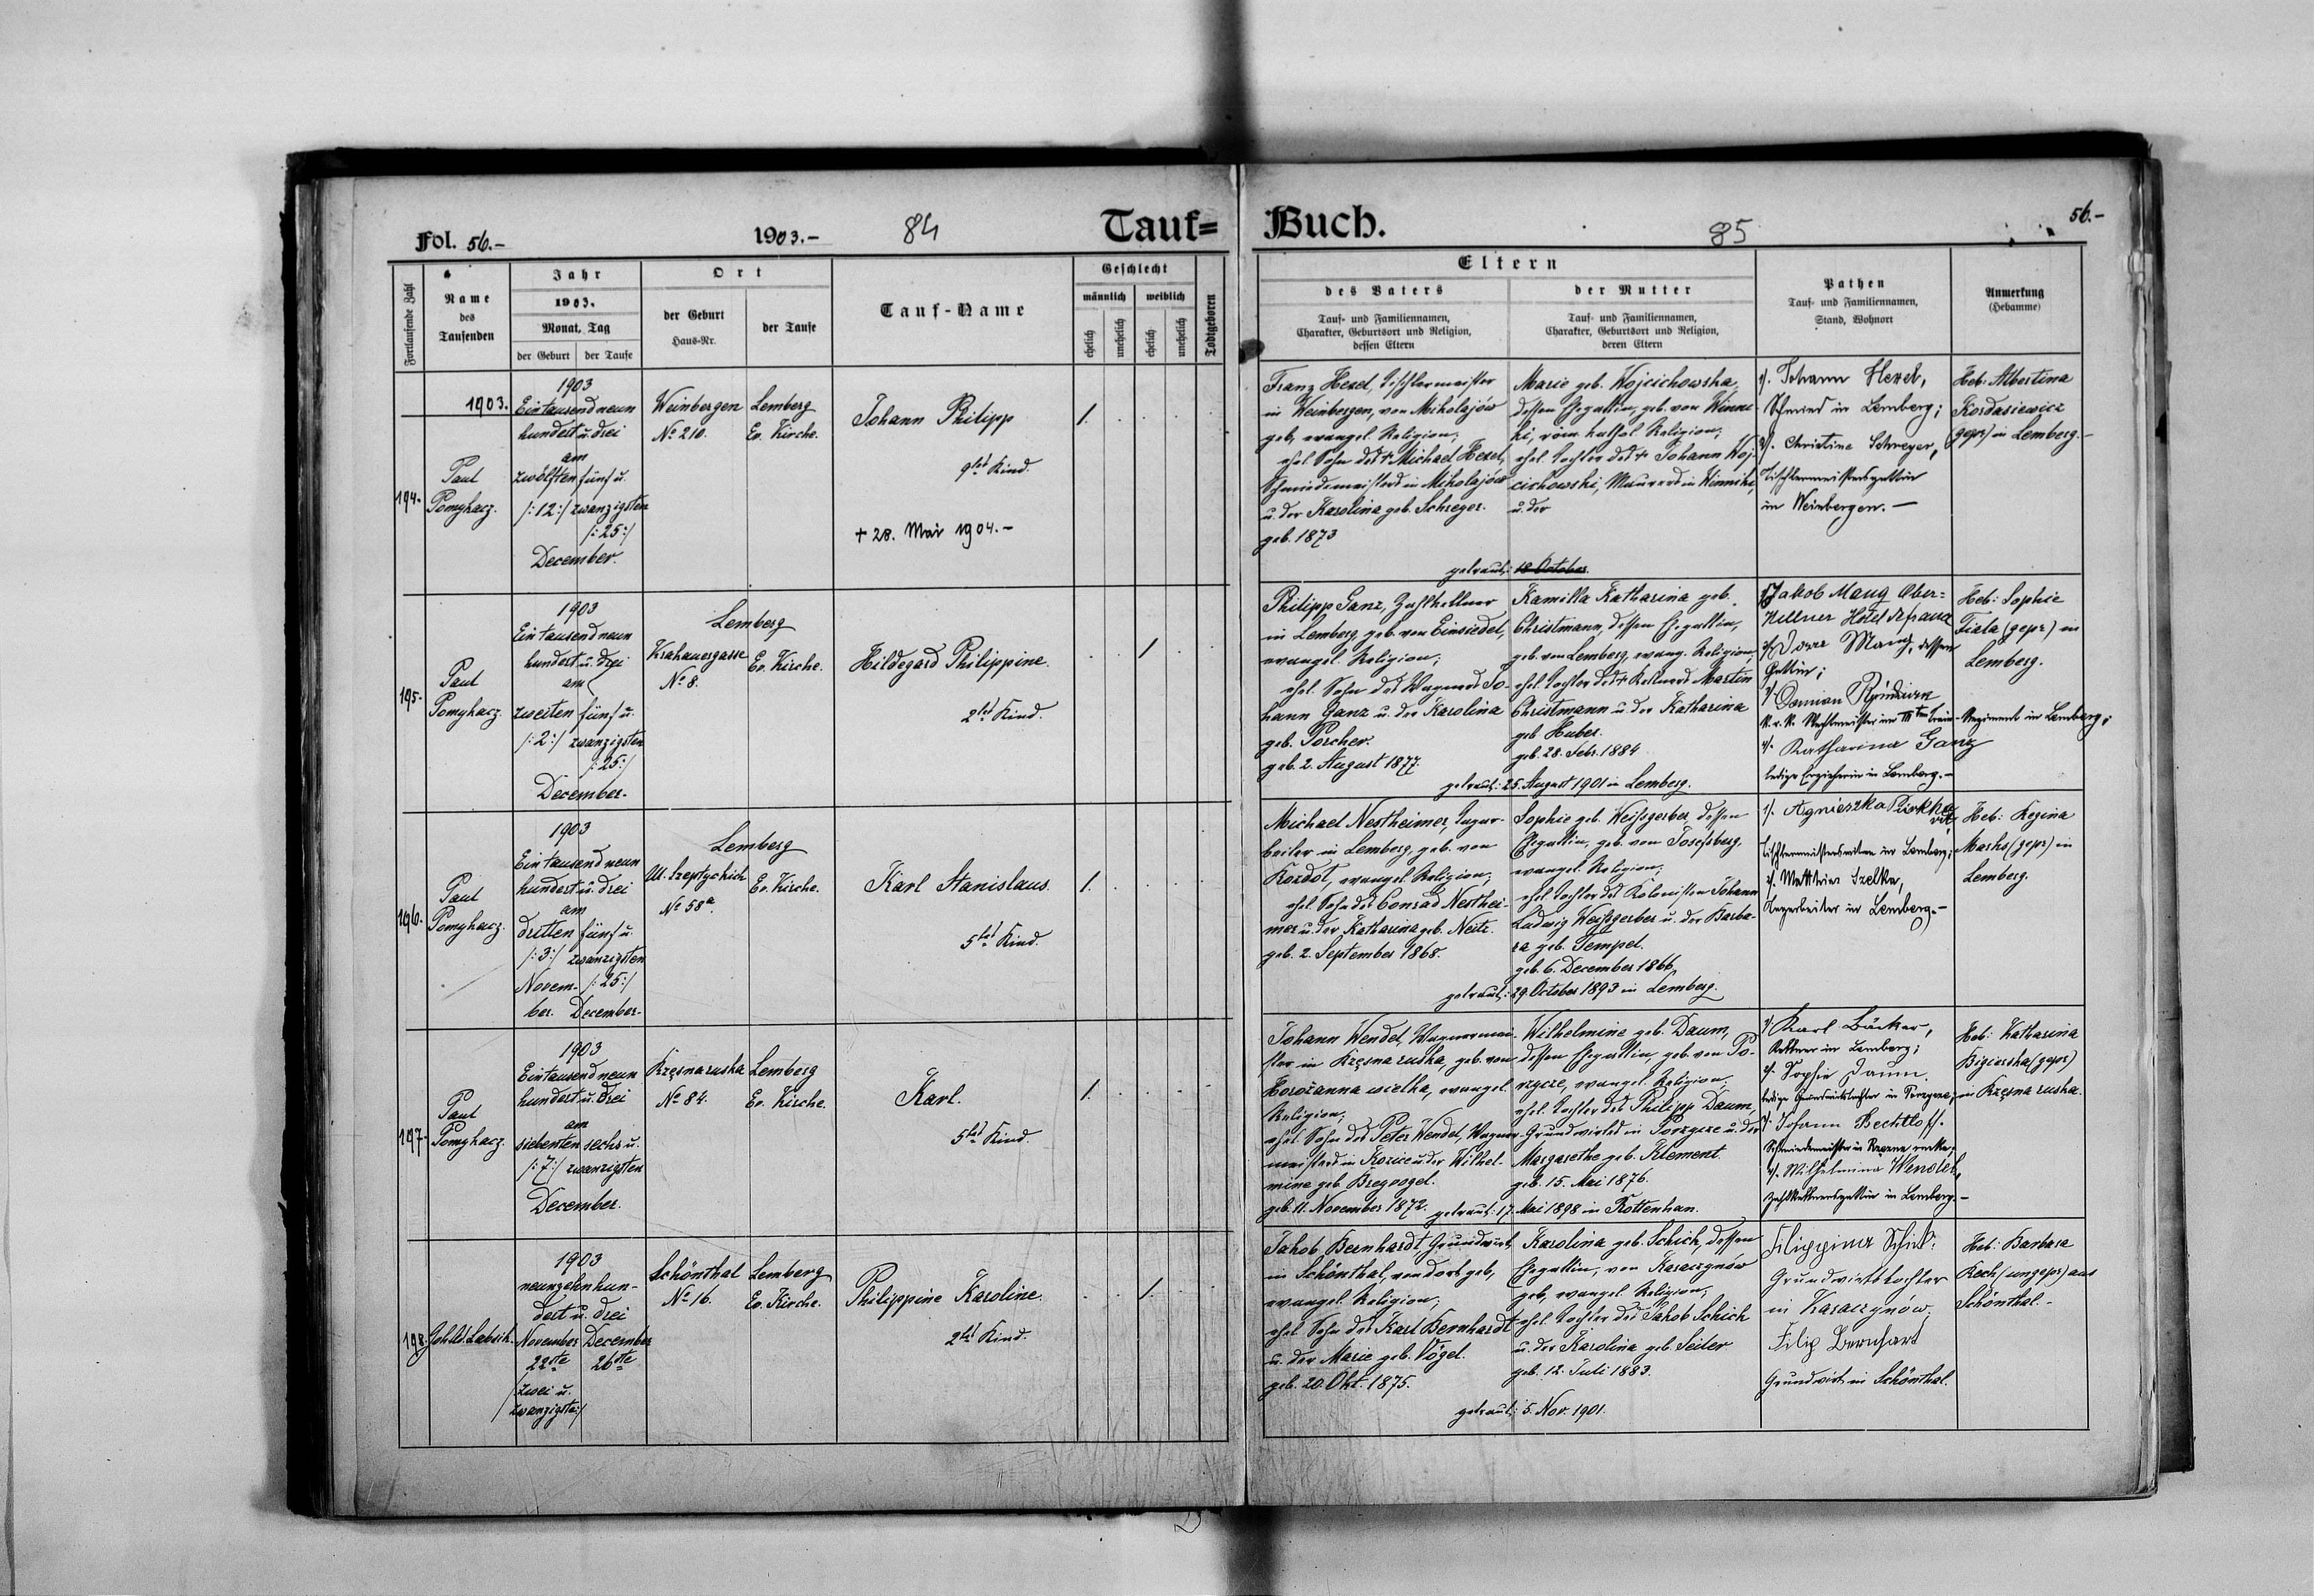 Fol. 56.-
1903.-
84
Tauf=
Buch.
85
56.-
Fortlaufende Zahl
Name
des
Taufenden
Jahr
1903.
Monat, Tag
der Geburt
der Taufe
Ort
der Geburt
Haus-Nr.
der Taufe
Tauf-Name
Geschlecht
männlich
weiblich
ehelich
unehelich
ehelich
unehelich
Todtgeboren
Eltern
des Vaters
Tauf- und Familiennamen,
Charakter, Geburtsort und Religion,
dessen Eltern
der Mutter
Tauf- und Familiennamen,
Charakter, Geburtsort und Religion,
deren Eltern
Pathen
Tauf- und Familiennamen,
Stand, Wohnort
Anmerkung
(Hebamme)
1903.
194.
Paul
Pomykacz.
1903
Eintausend neun
hundert u. drei
am
zwölften fünf u.
/:12:/ zwanzigsten
/:25:/
December.
Weinbergen
No 210.
Lemberg
Ev. Kirche.
Johann Philipp
9tes Kind.
+ 28. Mai 1904.-
1.
Franz Hexel, Tischlermeister
in Weinbergen, von Mikolajów
geb, evangel. Religion;
ehel. Sohn des + Michael Hexel,
Schmiedemeisters in Mikolajów
u. der Karolina geb. Schreyer.
geb. 1873
Marie geb. Wojcichowska,
dessen Ehegattin, geb. von Winni
ki, röm. kathol. Religion;
ehel. Tochter des + Johann Woj-
cichowski, Maurers in Winniki,
u. der
getraut: 18 October.
1/. Johann Hexel,
Schmied in Lemberg;
2/. Christine Schreyer,
Tischlermeistersgattin
in Weinbergen.-
Heb: Albertina
Kordasiewicz
(gepr) in Lemberg.-
195.
Paul
Pomykacz.
1903
Eintausend neun
hundert u. drei
am
zweiten fünf u.
/:2:/ zwanzigsten
/:25:/
December.
Lemberg
Krakauergasse
No 8.
Ev. Kirche.
Hildegard Philippine.
2tes Kind.
1
Philipp Ganz, Zahlkellner
in Lemberg, geb. von Einsiedel,
evangel. Religion;
ehel. Sohn des Wagners Jo-
hann Ganz u. der Karolina
geb. Porcher.
geb. 2. August 1877.
Kamilla Katharina geb.
Christmann, dessen Ehegattin,
geb. von Lemberg, evang. Religion;
ehel. Tochter des + Kellners Martin
Christmann u. der Katharina
geb. Huber.
geb. 28. Febr. 1884
getraut: 25. August 1901 in Lemberg.
1/ Jakob Maug Ober-
Kellner Hotel de france
2/ Maug, dessen
Gattin;
3/
k.u.k. Wachtmeister im Train-Regiment in Lemberg;
4/. Katharina Ganz
ledige Erzieherin in Lemberg.-
Heb: Sophie
Fiala (gepr) in
Lemberg.
196.
Paul
Pomykacz.
1903
Eintausend neun
hundert u. drei
am
dritten fünf u.
/:3:/ zwanzigsten
Novem- /:25:/
ber. December.
Lemberg
Ul. Szeptyckich
No 58a.
Ev. Kirche.
Karl Stanislaus.
5tes Kind.
1.
Michael Nestheimer, Lagar-
beiter in Lemberg, geb. von
Rozdot, evangel. Religion;
ehel. Sohn des Conrad Nesthei-
mer u. der Katharina geb. Neitz.
geb. 2. September 1868.
Sophie geb. Weißgerber, dessen
Ehegattin, geb. von Josefsberg,
evangel. Religion;
ehel. Tochter des Kolonisten Johann
Ludwig Weißgerber u. der Barba-
ra geb. Tempel.
geb. 6. December 1866.
getraut: 29. October 1893 in Lemberg.
1/. Agnieszka
Tischlermeisterswitwe in Lemberg;
2/. Matthias Szelka,
in Lemberg.-
Heb: Regina
Marks (gepr) in
Lemberg.
197.
Paul
Pomykacz.
1903
Eintausend neun
hundert u. drei
am
siebenten sechs u.
/:7:/ zwanzigsten
December.
Krzęsna ruska
No 84.
Lemberg
Ev. Kirche.
Karl.
5tes Kind.
1.
Johann Wendel, Wagnermei-
ster in Krzęsna ruska, geb. von
Horożanna wielka, evangel.
Religion;
ehel. Sohn des Peter Wendel, Wagner-
meisters in Kozice u. der Wilhel-
mine geb. Bregvogel.
geb. 11. November 1872.
Wilhelmine geb. Daum,
dessen Ehegattin, geb. von Po-
rzgcze, evangel. Religion;
ehel. Tochter des Philipp Daum,
Grundwirtes in Porzgcze u. der
Margarethe geb. Klement.
geb. 15. Mai 1876.
getraut: 17. Mai 1898 in Rottenhan.
1/ Karl Bäcker,
Kellner in Lemberg;
2/. Sophie Daum.
ledige Grundwirtstochter in
3/. Johann Bechtloff.
Schmiedemeister in Krzęsna ruska;
4/. Wilhelmina Wendel,
Zahlkellnersgattin in Lemberg.-
Heb: Katharina
(gepr)
in Krzęsna ruska.
198.
1903
neunzehnhun-
dert u. drei
November December
22ste 26ste
/:zwei u.
zwanzigste:/
Schönthal
No 16.
Lemberg
Ev. Kirche.
Philippine Karoline.
2tes Kind.
1.
Jakob Bernhardt, Grundwirt
in Schönthal, von dort geb,
evangel. Religion;
ehel. Sohn des Karl Bernhardt
u. der Marie geb. Vögel.
geb. 20. Okt. 1875.
Karolina geb. Schick, dessen
Ehegattin, von Karaczynów
geb, evangel. Religion;
ehel. Tochter des Jakob Schick
u. der Karolina geb. Seiler
geb. 12. Juli 1883.
getraut: 5. Nov. 1901.
Filippina Schick
Grundwirtstochter
in Karaczynów.
Filip Bernhart
Grundwirt in Schönthal.
Heb: Barbara
Rech (ungepr) aus
Schönthal.-